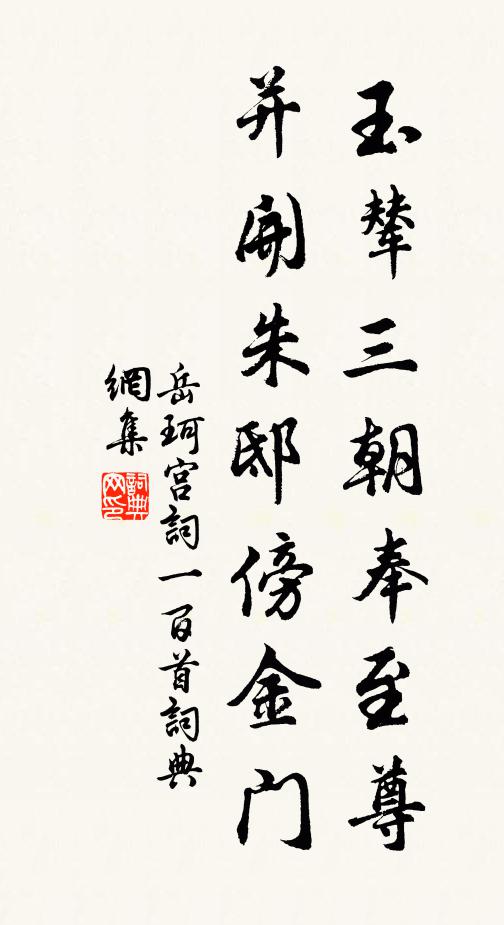 玉輦三朝奉至尊
并開朱邸傍金门
岳珂宫詞一百首詞典
網集
詞典网印